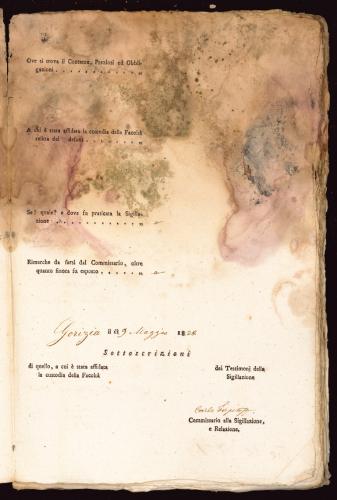 Ove si trova il Contante, Preziosi ed Obbli-
gazioni . . . . . . . . . . . . .
A cui è stata affidata la custodia della Facoltà
relitta del defunt . . . . . . . . .
Se? quale? e dove fu praticata la Sigilla-
zione . . . . . . . . . . . . . .
Rimarche da farsi dal Commissario, oltre
quanto finora fu esposto . . . . . .
Gorizia il dì 9 Maggio 18
Sottoscrizioni
di quello, a cui è stata affidata
la custodia della Facoltà
dei Testimonj della
Sigillazione
Carlo
Commissario alla Sigillazione,
e Relazione.